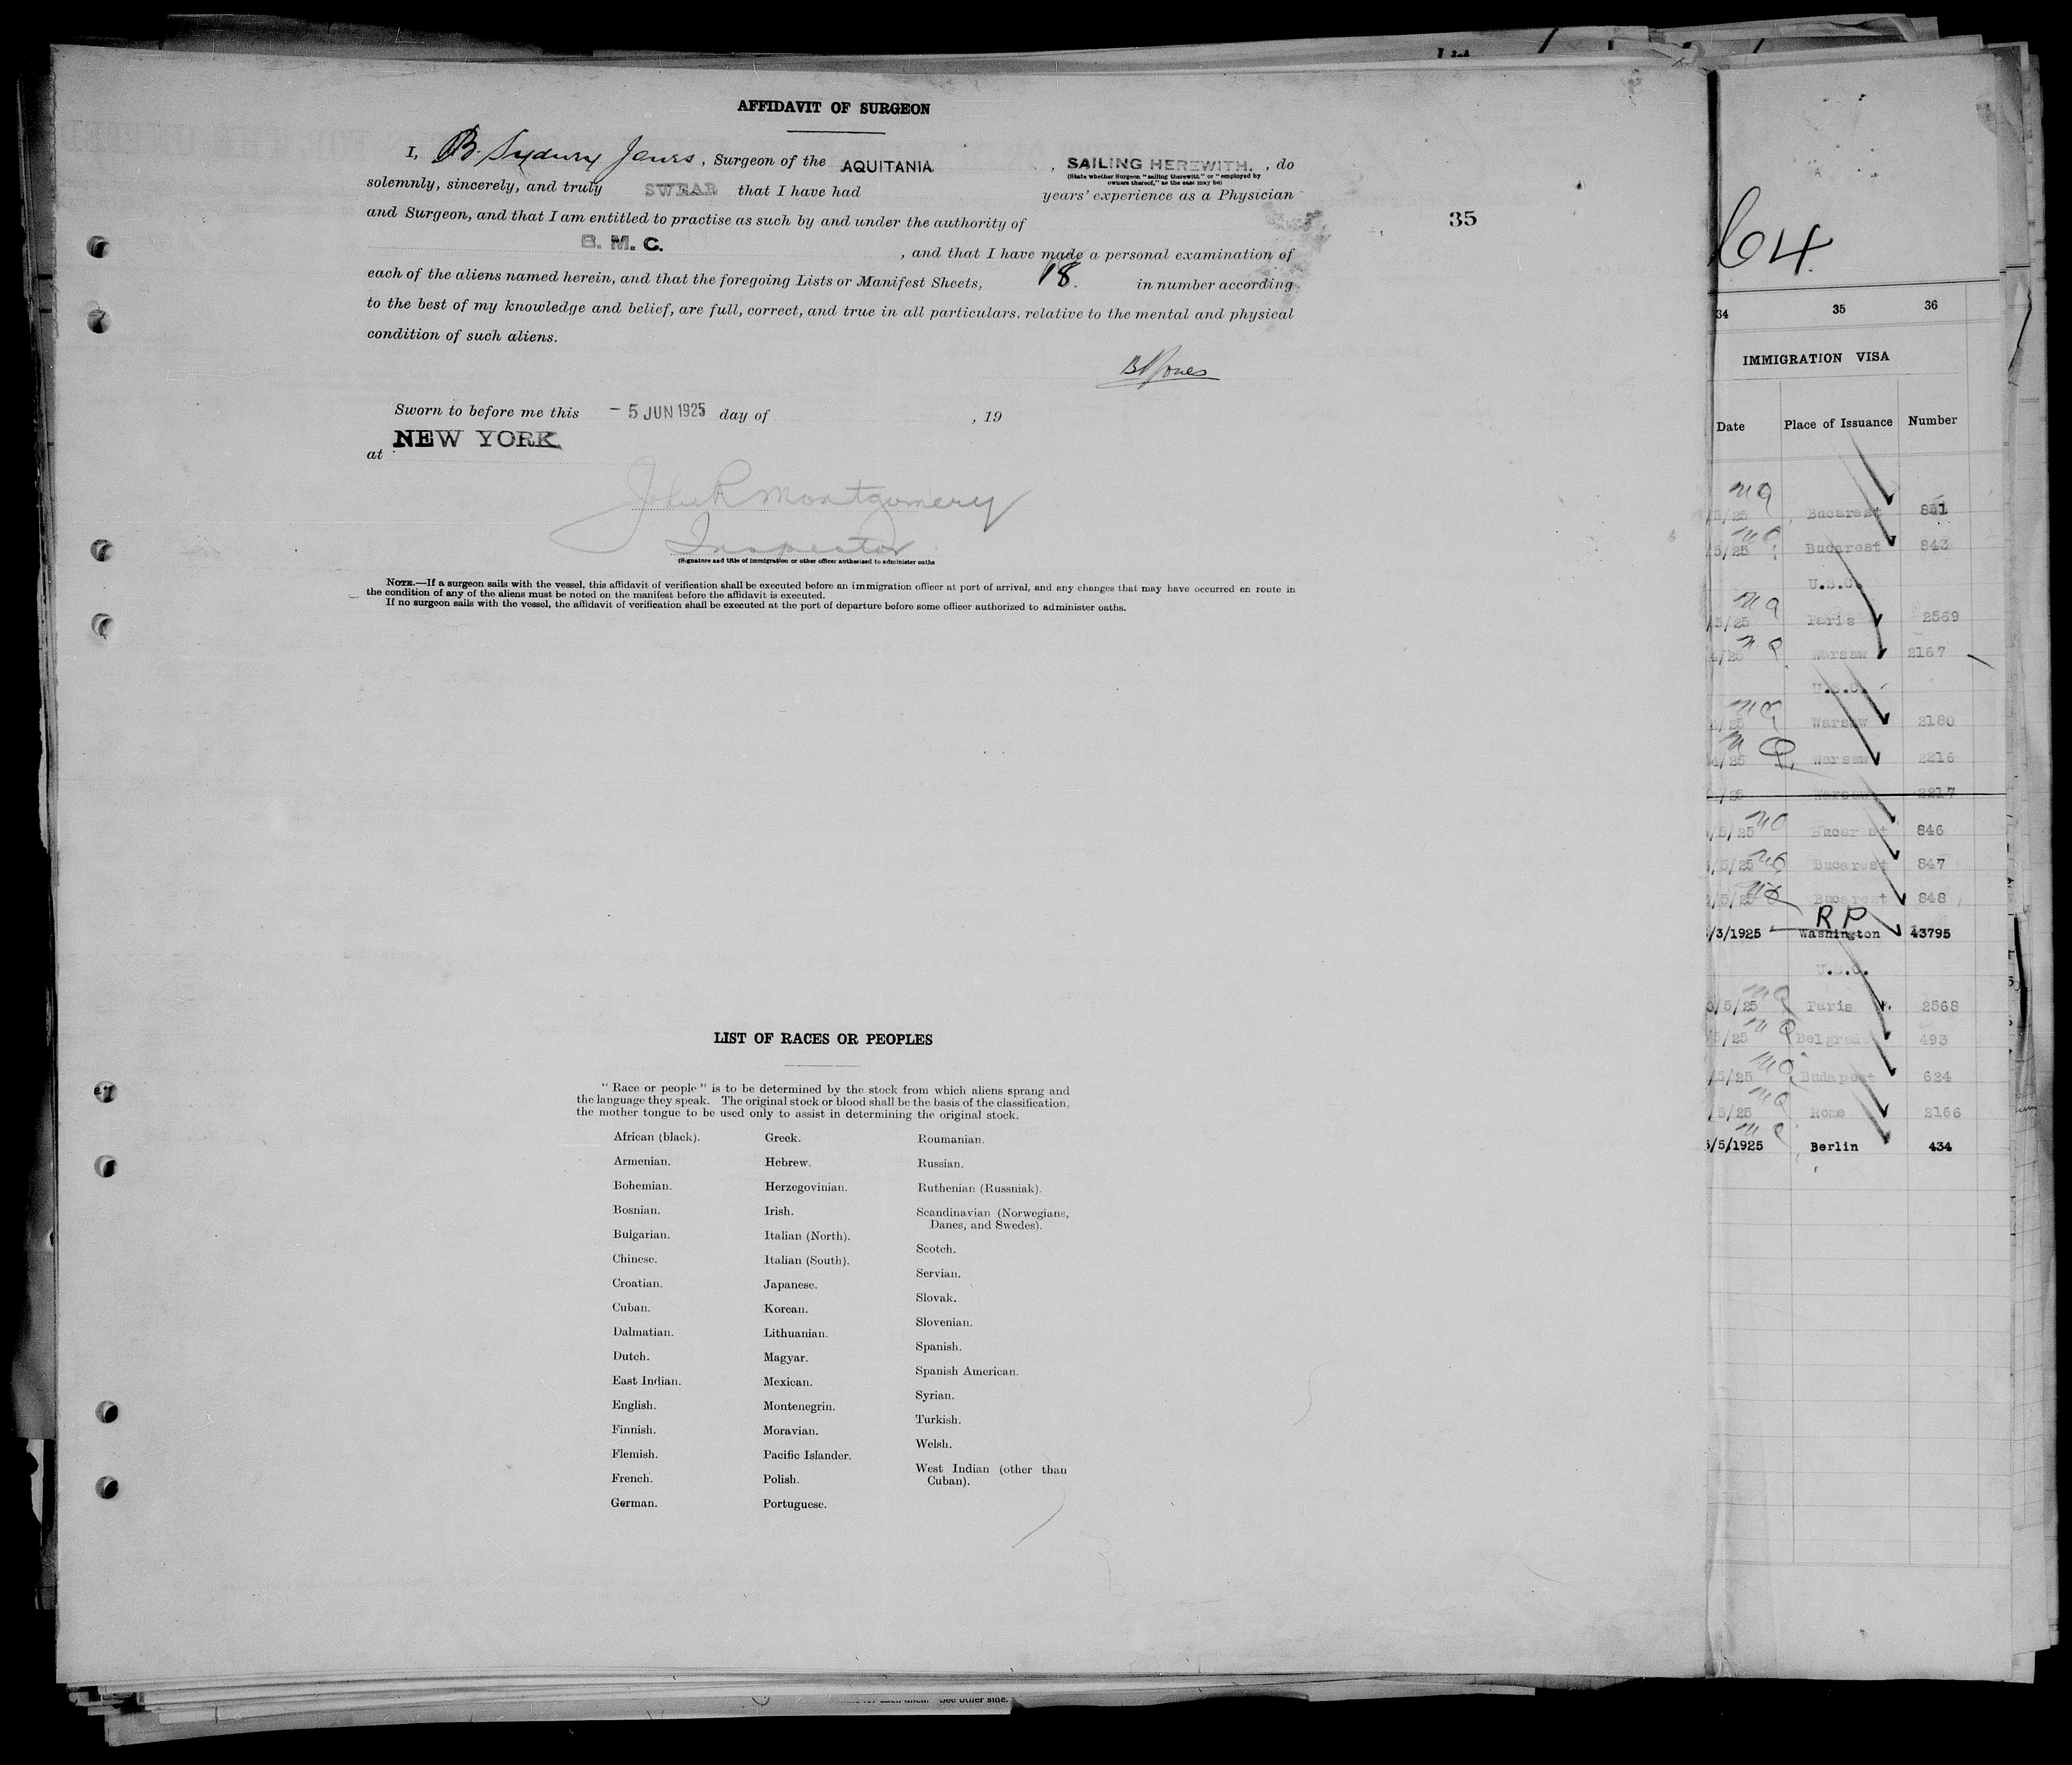 AFFIDAVIT OF SURGEON
I, B. Sydney Jones, Surgeon of the AQUITANIA, SAILING HEREWITH., do
(State whether Surgeon "sailing therewith" or "employed by
owners thereof," as the case may be)
solemnly, sincerely, and truly SWEAR that I have had years' experience as a Physician
and Surgeon, and that I am entitled to practise as such by and under the authority of
B. M. C., and that I have made a personal examination of
each of the aliens named herein, and that the foregoing Lists or Manifest Sheets, 18. in number according,
to the best of my knowledge and belief, are full, correct, and true in all particulars, relative to the mental and physical
condition of such aliens.
BSJones
Sworn to before me this - 5 JUN 1925 day of , 19
at NEW YORK
John R Montgomery
Inspector
(Signature and title of immigration or other officer authorized to administer oaths
NOTE.—If a surgeon sails with the vessel, this affidavit of verification shall be executed before an immigration officer at port of arrival, and any changes that may have occurred en route in
the condition of any of the aliens must be noted on the manifest before the affidavit is executed.
If no surgeon sails with the vessel, the affidavit of verification shall be executed at the port of departure before some officer authorized to administer oaths.
35
LIST OF RACES OR PEOPLES
" Race or people " is to be determined by the stock from which aliens sprang and
the language they speak. The original stock or blood shall be the basis of the classification,
the mother tongue to be used only to assist in determining the original stock.
African (black).
Armenian.
Bohemian.
Bosnian.
Bulgarian.
Chinese.
Croatian.
Cuban.
Dalmatian.
Dutch.
East Indian.
English.
Finnish.
Flemish.
French.
German.
Greek.
Hebrew.
Herzegovinian.
Irish.
Italian (North).
Italian (South).
Japanese.
Korean.
Lithuanian.
Magyar.
Mexican.
Montenegrin.
Moravian.
Pacific Islander.
Polish.
Portuguese.
Roumanian.
Russian.
Ruthenian (Russniak).
Scandinavian (Norwegians,
Danes, and Swedes).
Scotch.
Servian.
Slovak.
Slovenian.
Spanish.
Spanish American.
Syrian.
Turkish.
Welsh.
West Indian (other than
Cuban).
64
34 35 36
IMMIGRATION VISA
Date Place of Issuance Number
/5/25 Bucarest 851
/5/25 Bucarest 843
U.S.C.
/5/25 Paris 2569
4/25 Warsaw 2167
U.S.C.
/25 Warsaw 2180
4/25 Warsaw 2216
/25 Warsaw 2217
/5/25 Bucarest 846
/5/25 Bucarest 847
/5/25 Bucarest 848
RP
/3/1925 Washington 43795
U.S.C.
/5/25 Paris 2568
/5/25 Belgrade 493
/5/25 Budapest 624
/5/25 Rome 2166
/5/1925 Berlin 434
See other side.